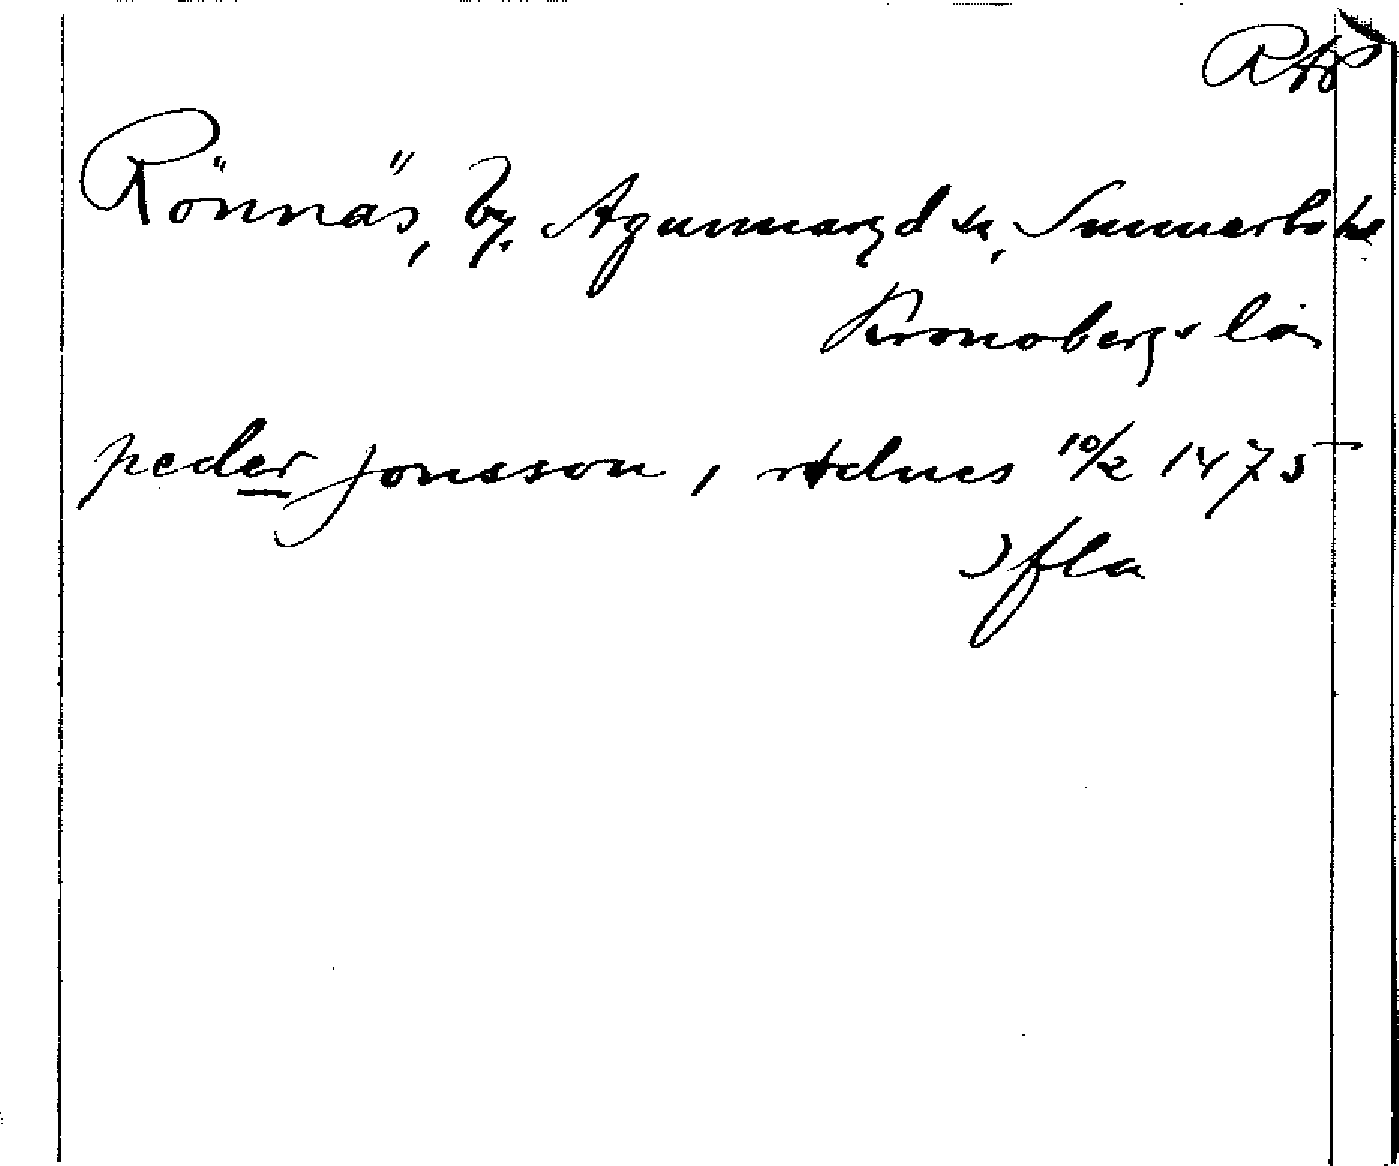 RAP
Rönnäs, by, Agunnaryd sn, Sunnerbo hd
Kronobergs län
peder jonsson, vtdnes 10/2 1475
Ifla